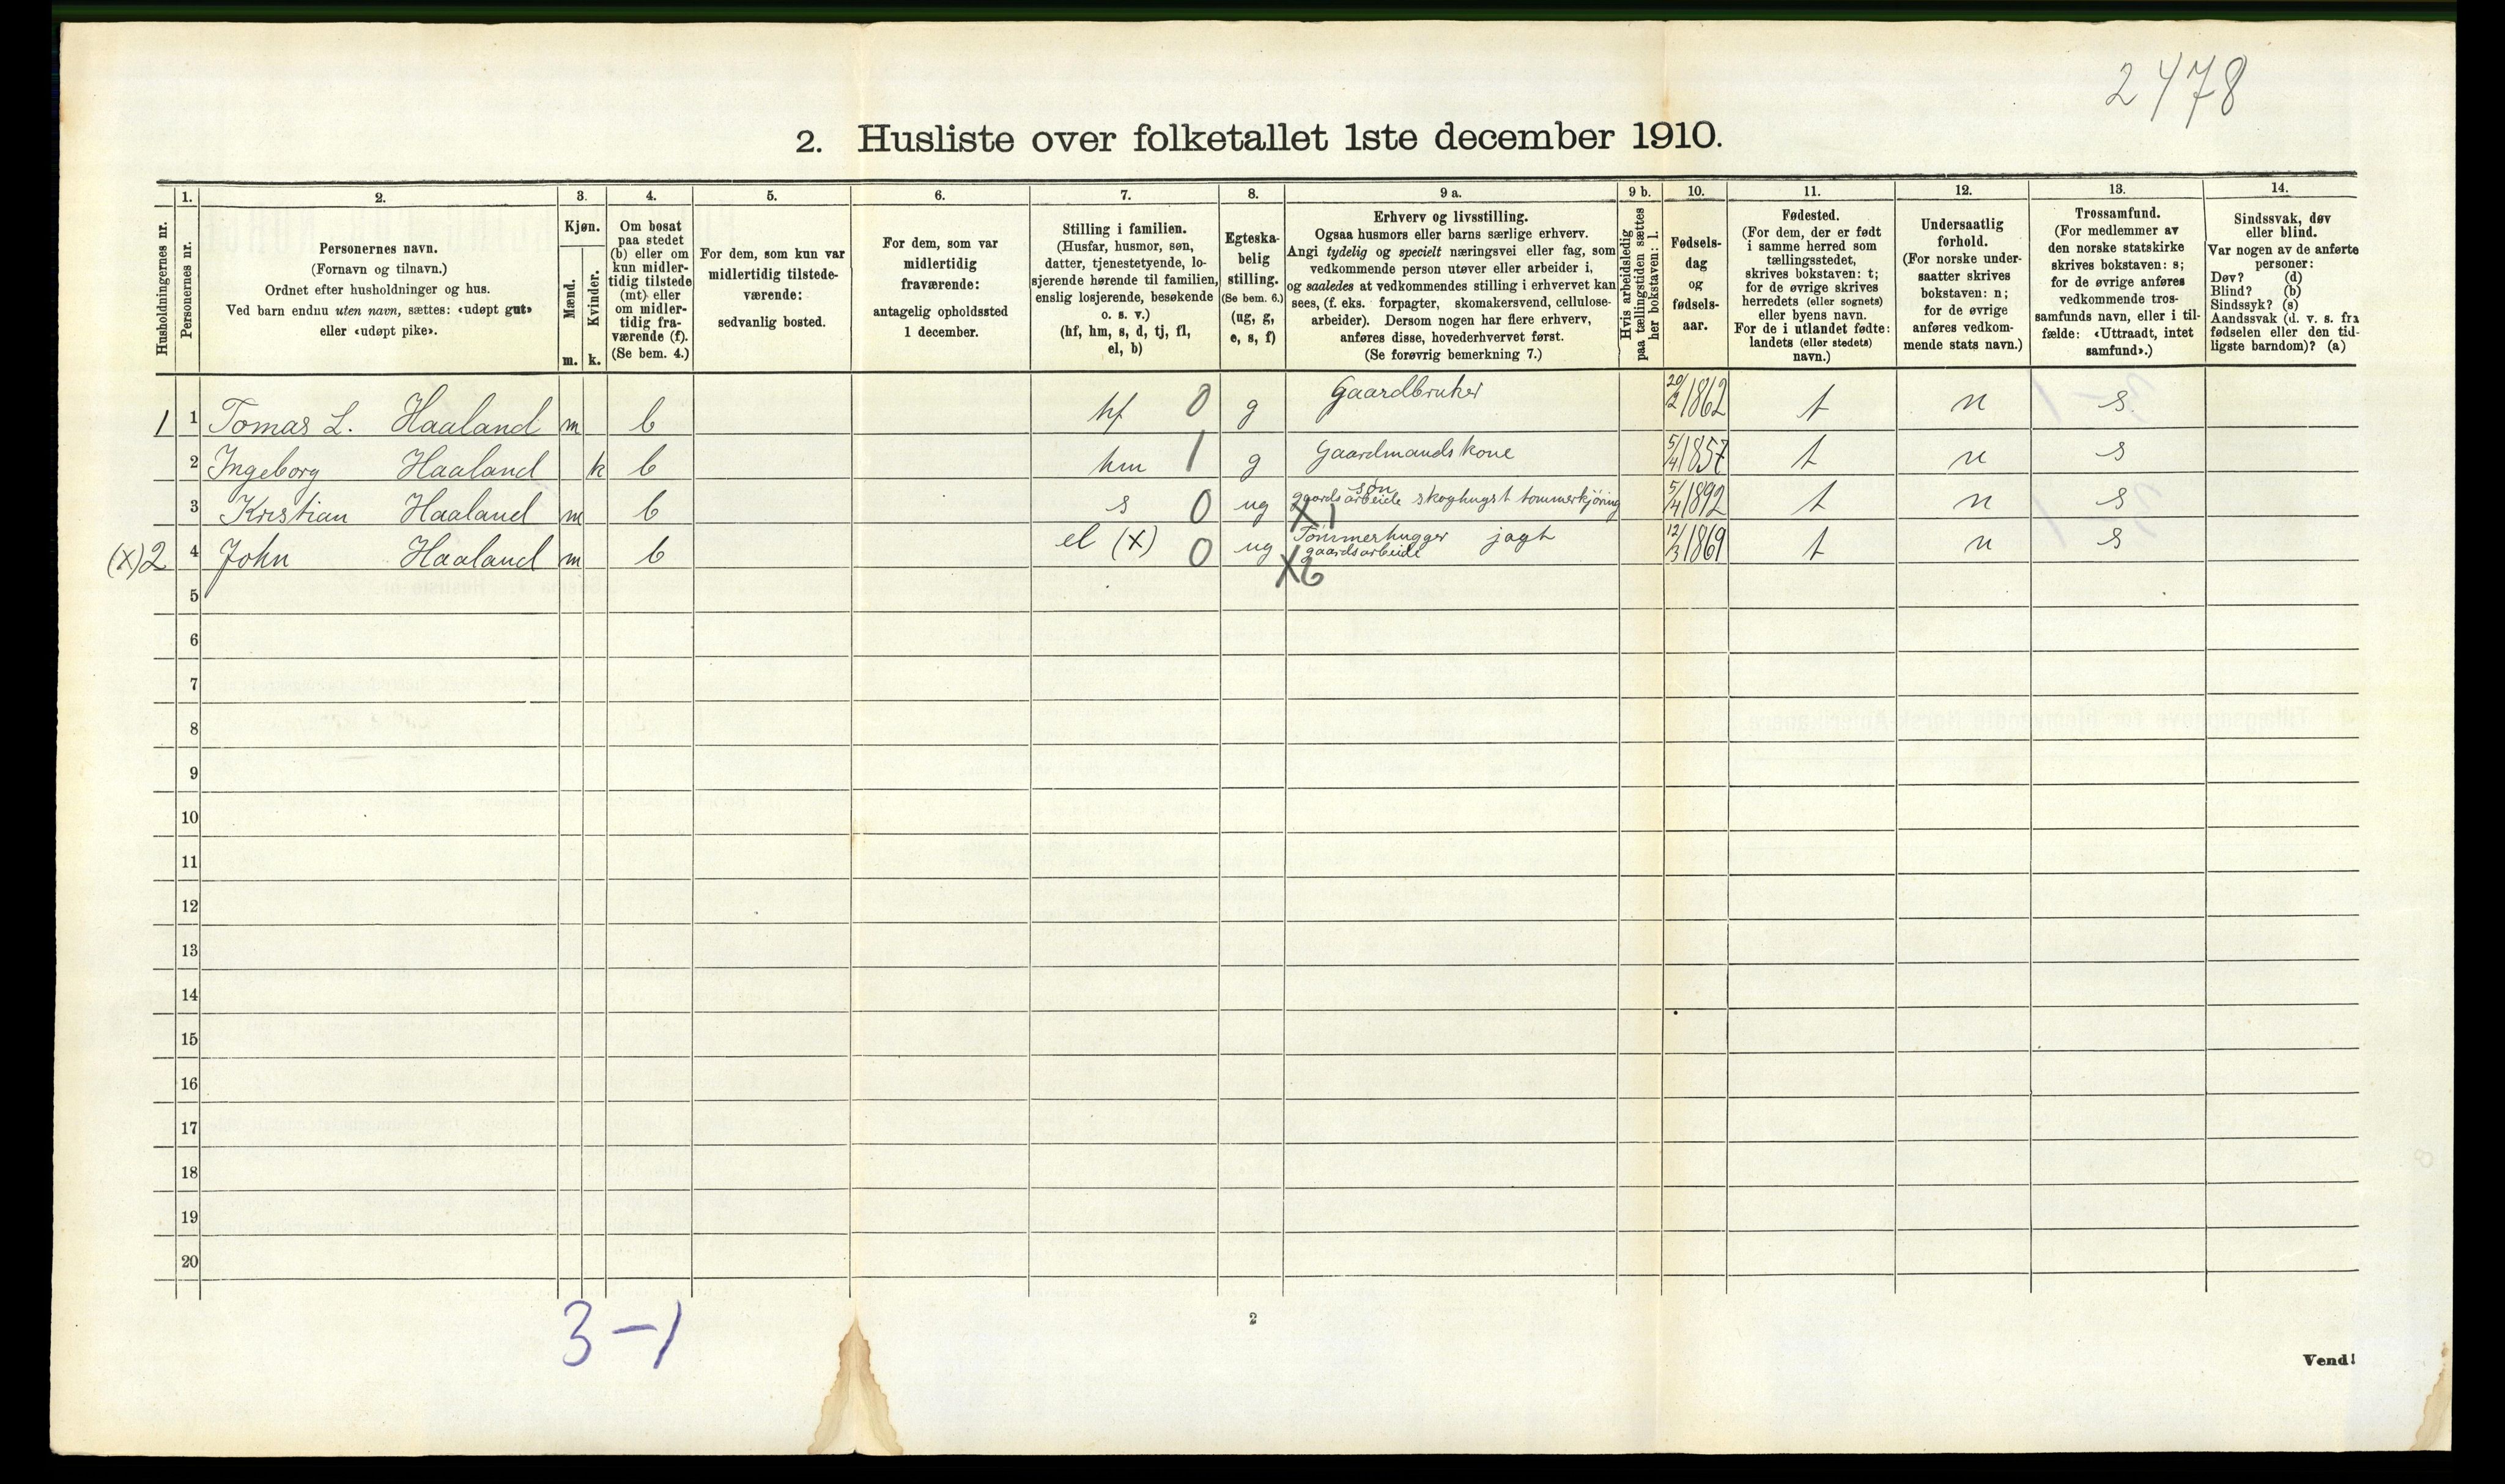 2478
2. Husliste over folketallet 1ste december 1910.
Husholdningernes nr.
1.
Personernes nr.
2.
Personernes navn.
(Fornavn og tilnavn.)
Ordnet efter husholdninger og hus.
Ved barn endnu uten navn, sættes: «udøpt gut»
eller «udøpt pike».
3.
Kjøn.
Mænd.
m.
Kvinder.
k.
4.
Om bosat
paa stedet
(b) eller om
kun midler-
tidig tilstede
(mt) eller
om midler-
tidig fra-
værende (f).
(Se bem. 4.)
5.
For dem, som kun var
midlertidig tilstede-
værende:
sedvanlig bosted.
6.
For dem, som var
midlertidig
fraværende:
antagelig opholdssted
1 december.
7.
Stilling i familien.
(Husfar, husmor, søn,
datter, tjenestetyende, lo-
sjerende hørende til familien,
enslig losjerende, besøkende
o. s. v.)
(hf, hm, s, d, tj, fl,
el, b)
8.
Egteska-
belig
stilling.
(Se bem. 6.)
(ug, g,
e, s, f)
9 a.
Erhverv og livsstilling.
Ogsaa husmors eller barns særlige erhverv.
Angi tydelig og specielt næringsvei eller fag, som
vedkommende person utøver eller arbeider i,
og saaledes at vedkommendes stilling i erhvervet kan
sees, (f. eks. forpagter, skomakersvend, cellulose-
arbeider). Dersom nogen har flere erhverv,
anføres disse, hovederhvervet først.
(Se forøvrig bemerkning 7.)
9 b.
Hvis arbeidsledig
paa tællingstiden sættes
her bokstaven: l.
10.
Fødsels-
dag
og
fødsels-
aar.
11.
Fødested.
(For dem, der er født
i samme herred som
tællingsstedet,
skrives bokstaven: t;
for de øvrige skrives
herredets (eller sognets)
eller byens navn.
For de i utlandet fødte:
landets (eller stedets)
navn.)
12.
Undersaatlig
forhold.
(For norske under-
saatter skrives
bokstaven: n;
for de øvrige
anføres vedkom-
mende stats navn.)
13.
Trossamfund.
(For medlemmer av
den norske statskirke
skrives bokstaven: s;
for de øvrige anføres
vedkommende tros-
samfunds navn, eller i til-
fælde: «Uttraadt, intet
samfund».)
14.
Sindssvak, døv
eller blind.
Var nogen av de anførte
personer:
Døv? (d)
Blind? (b)
Sindssyk? (s)
Aandssvak (d. v. s. fra
fødselen eller den tid-
ligste barndom)? (a)
1 1 Tomas L. Haaland m b hf 0 g Gaardbruker 20/2 1862 t n s.
2 Ingeborg Haaland k b hm 1 g Gaardmandskone 5/4 1857 t n s
3 Kristian Haaland m b s 0 ug gaardsarbeide søn skoghugst tømmerkjøring X 1 5/4 1892 t n s
(x) 2 4 John Haaland m b el (x) 0 ug Tømmerhugger jagt gaardsarbeide X6 12/3 1869 t n s
5
6
7
8
9
10
11
12
13
14
15
16
17
18
19
20
3-1
2
Vend!